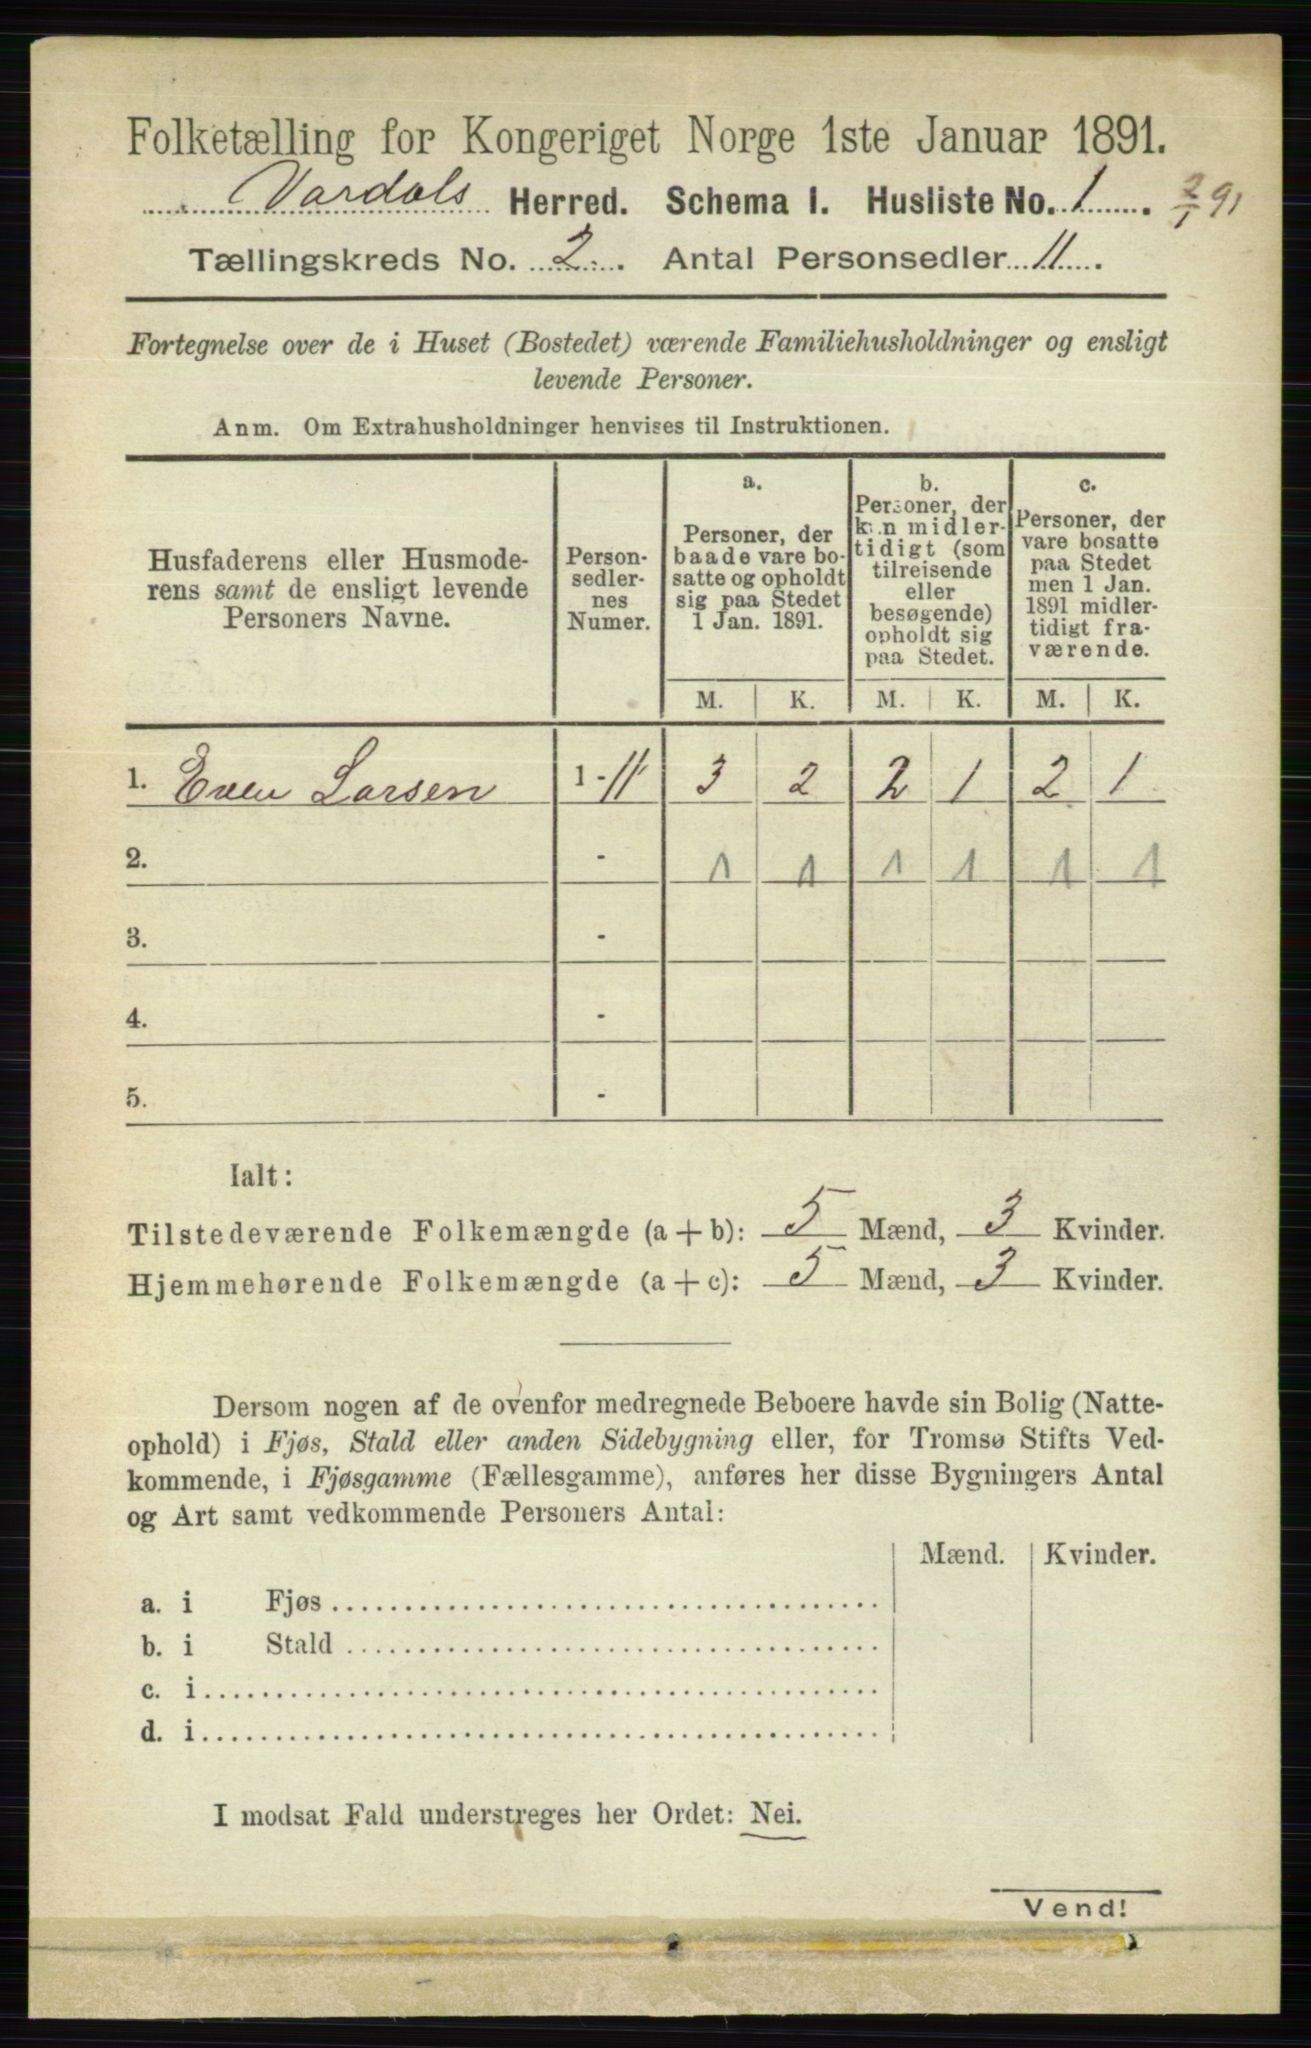 Folketælling for Kongeriget Norge 1ste Januar 1891.
Vardals Herred. Schema I. Husliste No. 1. 2/1 91
Tællingskreds No. 2. Antal Personsedler 11.
Fortegnelse over de i Huset (Bostedet) værende Familiehusholdninger og ensligt
levende Personer.
Anm. Om Extrahusholdninger henvises til Instruktionen.
Husfaderens eller Husmode-
rens samt de ensligt levende
Personers Navne.
Person-
sedler-
nes
Numer.
a.
Personer, der
baade vare bo-
satte og opholdt
sig paa Stedet
1 Jan. 1891.
b.
Personer, der
kun midler-
tidigt (som
tilreisende
eller
besøgende)
opholdt sig
paa Stedet.
c.
Personer, der
vare bosatte
paa Stedet
men 1 Jan.
1891 midler-
tidigt fra-
værende.
M. K. M. K. M. K.
1. Even Larsen 1-11 3 2 2 1 2 1
2. - 1 1 1 1 1 1
3. -
4. -
5. -
Ialt:
Tilstedeværende Folkemængde (a + b): 5 Mænd, 3 Kvinder.
Hjemmehørende Folkemængde (a + c): 5 Mænd, 3 Kvinder.
Dersom nogen af de ovenfor medregnede Beboere havde sin Bolig (Natte-
ophold) i Fjøs, Stald eller anden Sidebygning eller, for Tromsø Stifts Ved-
kommende, i Fjøsgamme (Fællesgamme), anføres her disse Bygningers Antal
og Art samt vedkommende Personers Antal:
Mænd. Kvinder.
a. i Fjøs
b. i Stald
c. i
d. i
I modsat Fald understreges her Ordet: Nei.
Vend!